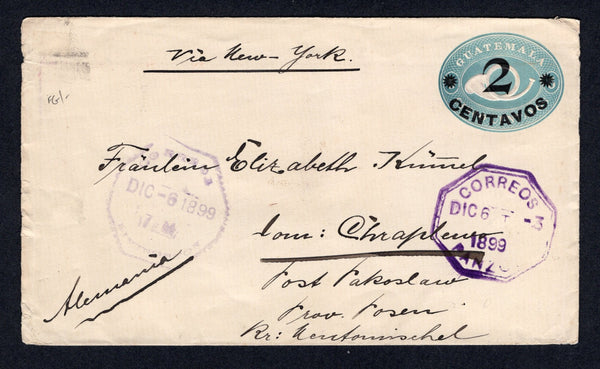 Via New-York.
GUATEMALA
2
CENTAVOS
Fräulein Elizabeth Kümel
DIC -6 1899
CORREOS
DIC 6
1899
dom: Chraplewo
Alemania
Post Pakoslaw
Prov. Posen
Kr: Neutomischel